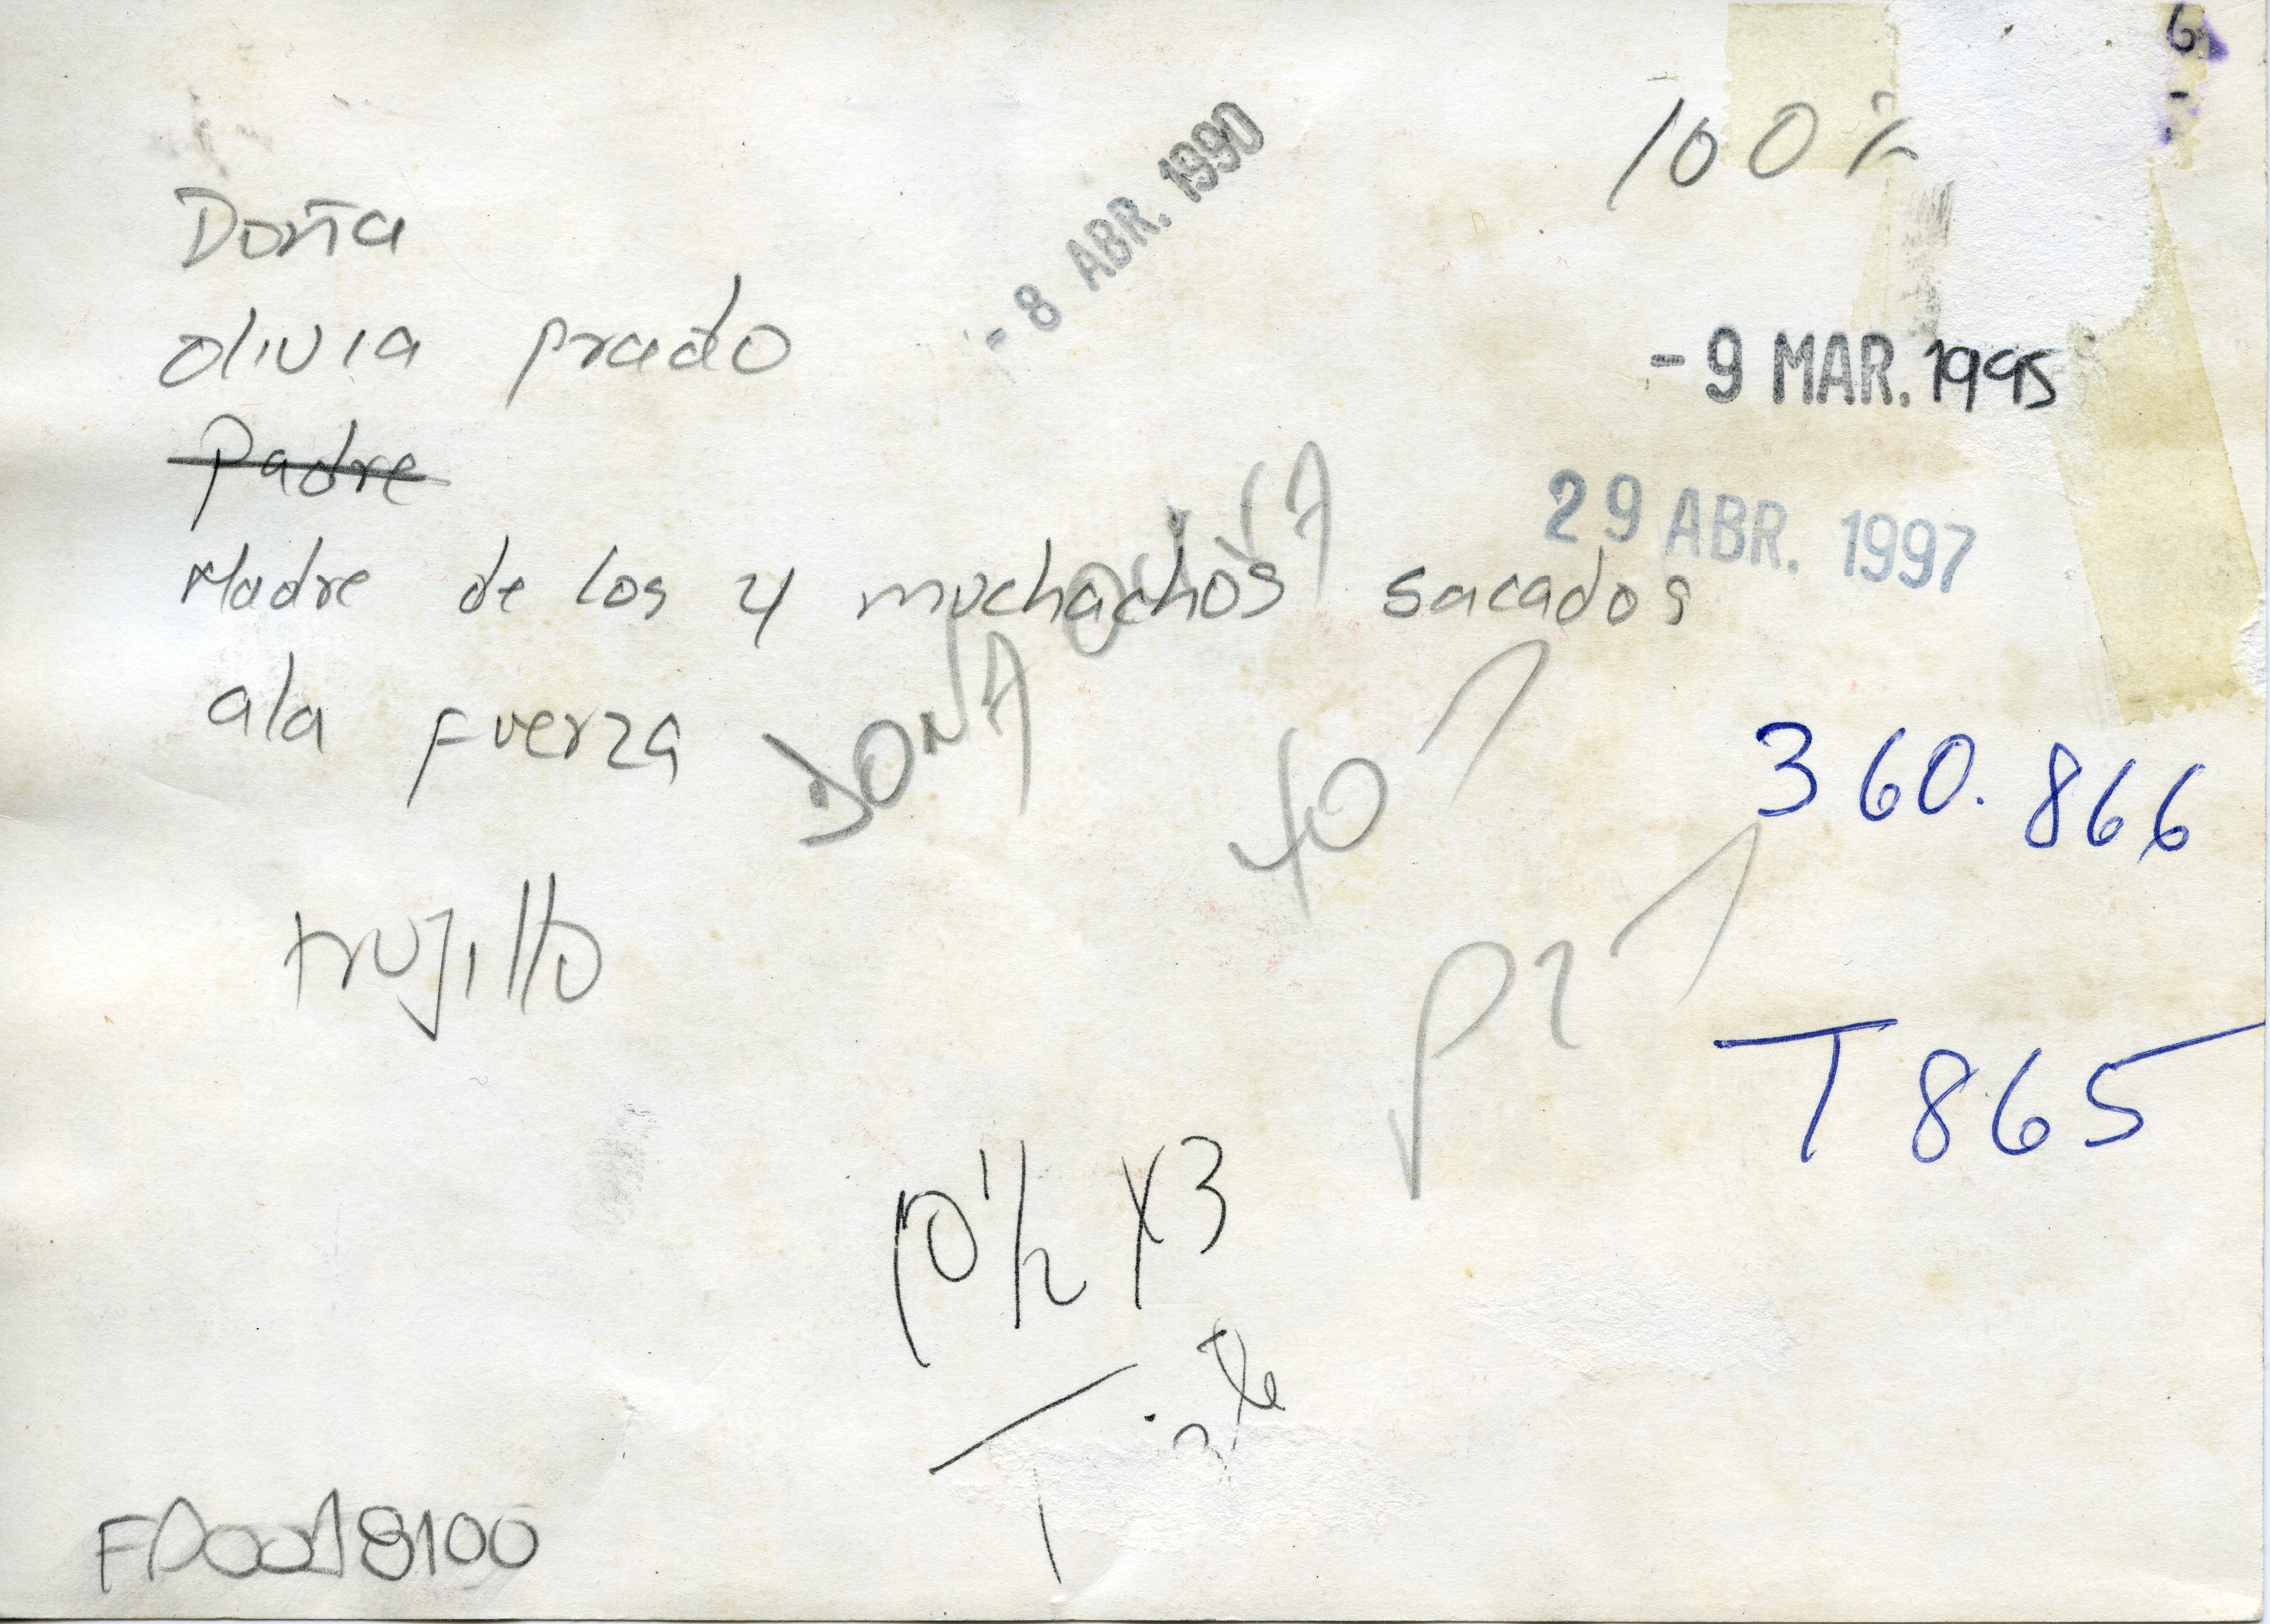 100%
- 8 ABR. 1990
Doña
olivia prado
- 9 MAR. 1995
~~Padre~~
29 ABR. 1997
Madre de los 4 muchachos sacados
ala fuerza
DOÑA OLIVIA
40
360.866
trujillo
P21
T865
10 1/2 X3
FP0018100